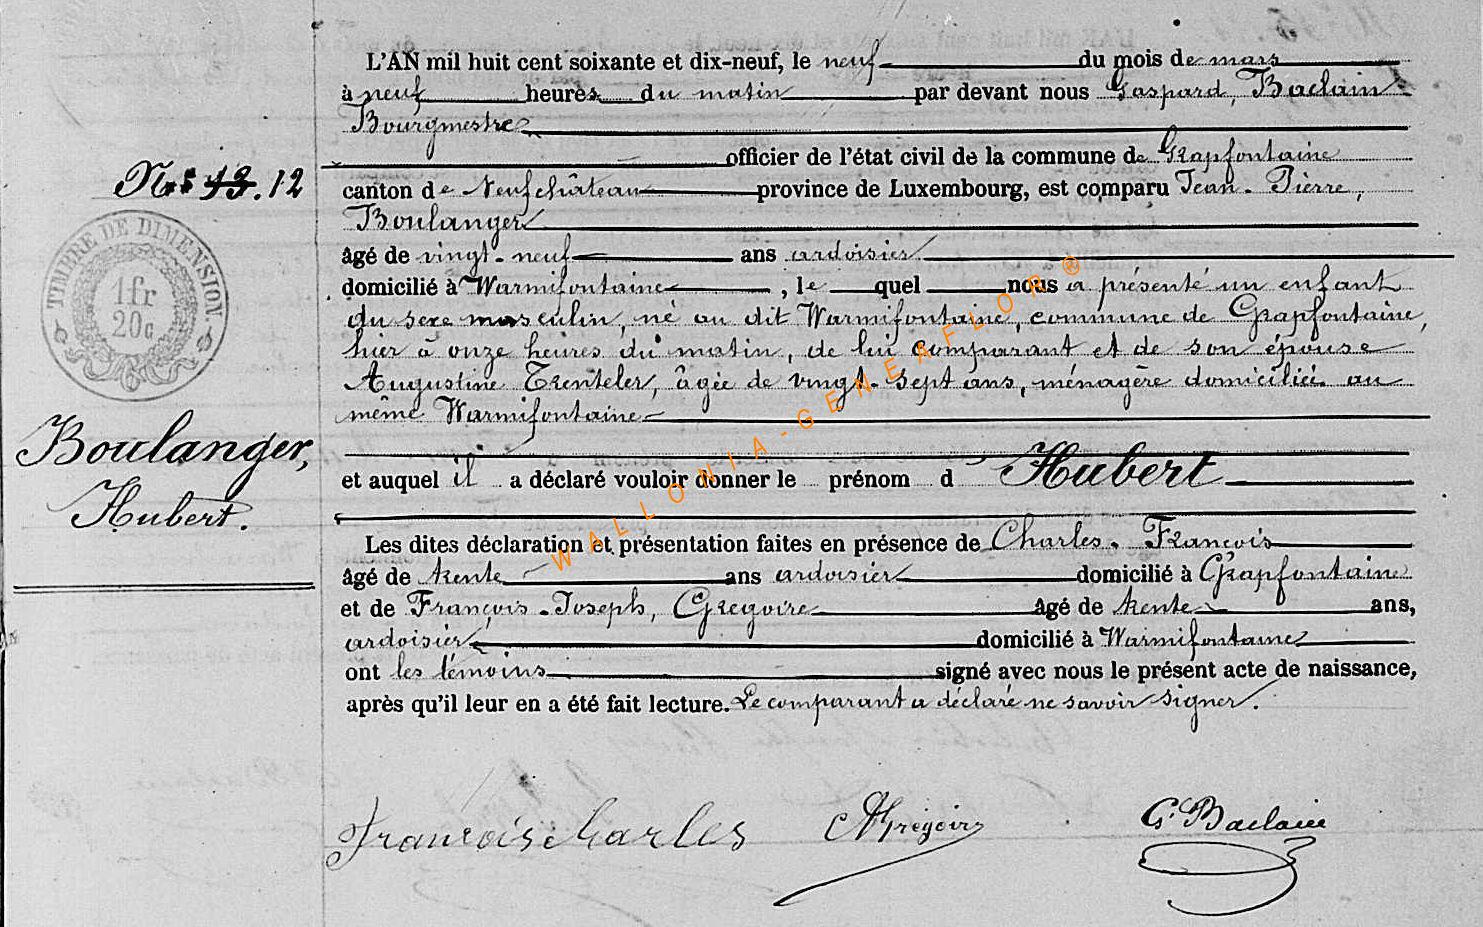 L'AN mil huit cent soixante et dix-neuf, le neuf du mois de mars
à neuf heures du matin par devant nous Gaspard, Baclain
Bourgmestre
officier de l'état civil de la commune de Grapfontaine
Nos 13. 12
canton de Neufchâteau province de Luxembourg, est comparu Jean-Pierre,
Boulanger
TIMBRE DE DIMENSION.
1 fr
20c
âgé de vingt-neuf ans ardoisier
domicilié à Warmifontaine, le quel nous a présenté un enfant
du sexe masculin, né au dit Warmifontaine, commune de Grapfontaine,
hier à onze heures du matin, de lui comparant et de son épouse
Augustine Trenteler, âgée de vingt-sept ans, ménagère domiciliée au
même Warmifontaine
Boulanger,
Hubert.
et auquel il a déclaré vouloir donner le prénom d Hubert
Les dites déclaration et présentation faites en présence de Charles. François
âgé de trente ans ardoisier domicilié à Grapfontaine
et de François-Joseph, Grégoire âgé de trente ans,
ardoisier domicilié à Warmifontaine
ont les témoins signé avec nous le présent acte de naissance,
après qu'il leur en a été fait lecture. Le comparant a déclaré ne savoir signer.
François Charles Grégoire G. Baclain
WALLONIA-GENEAFLOR ®